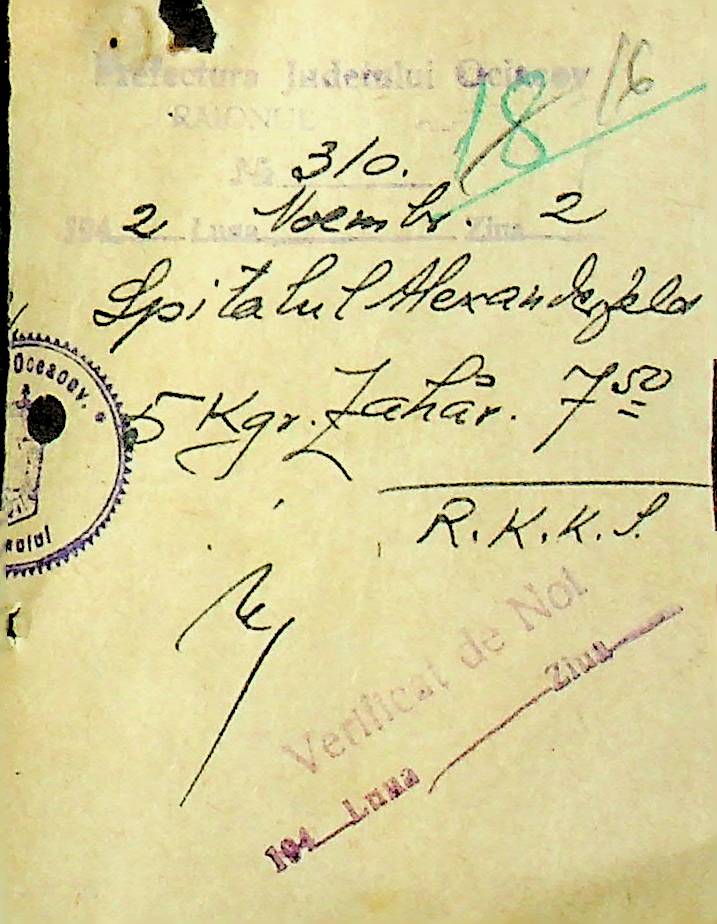 Prefectura Județului Oceacov
RAIONUL
16
18
No 310.
194 2 Luna Noembr. Ziua 2
Spitalul Alexanderfeld
Oceacov.
5 Kgr. Zahăr. 7 50
R.K.K.S.
Verificat de Noi
194 Luna Ziua